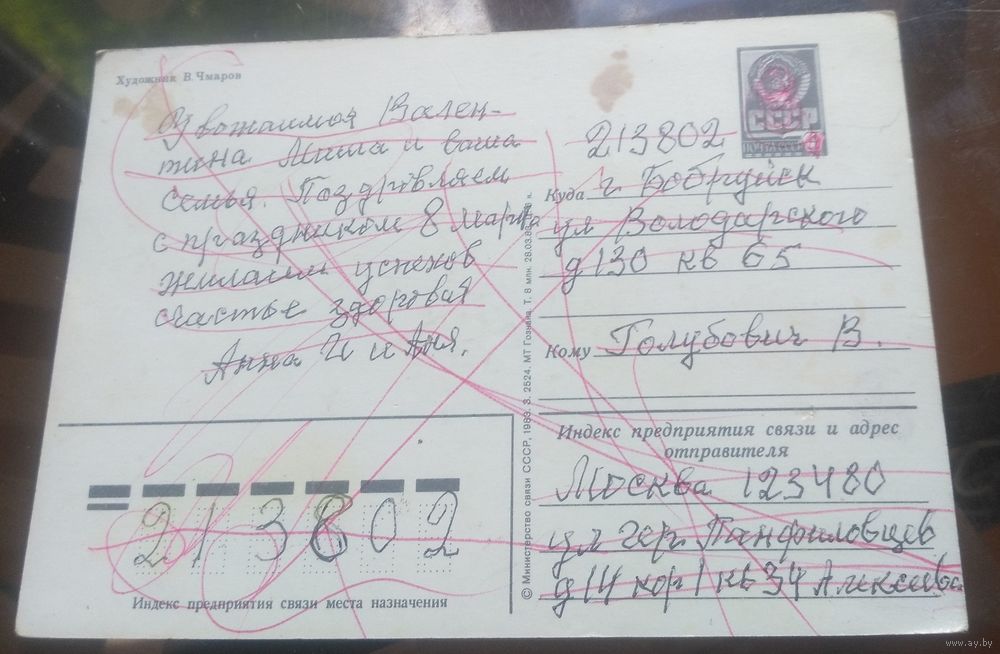 Художник В. Чмаров
Уважаимая Вален-
тина Миша и ваша
семья. Поздровляем
с праздником 8 марта
жилаим успехов
счастье здоровия
Анна И и Аня.
СССР
ПОЧТА
213802
Куда г Бобруйск
ул Володарского
д 130 кв 65
Кому Голубович В.
Индекс предприятия связи и адрес
отправителя
Москва 123480
ул гер. Панфиловцев
д 14 кор 1 кв 34
213802
Индекс предприятия связи места назначения
© Министерство связи СССР, 1983. З. 2524. МТ Гознака. Т. 8 млн. 28.03.83.
www.ay.by